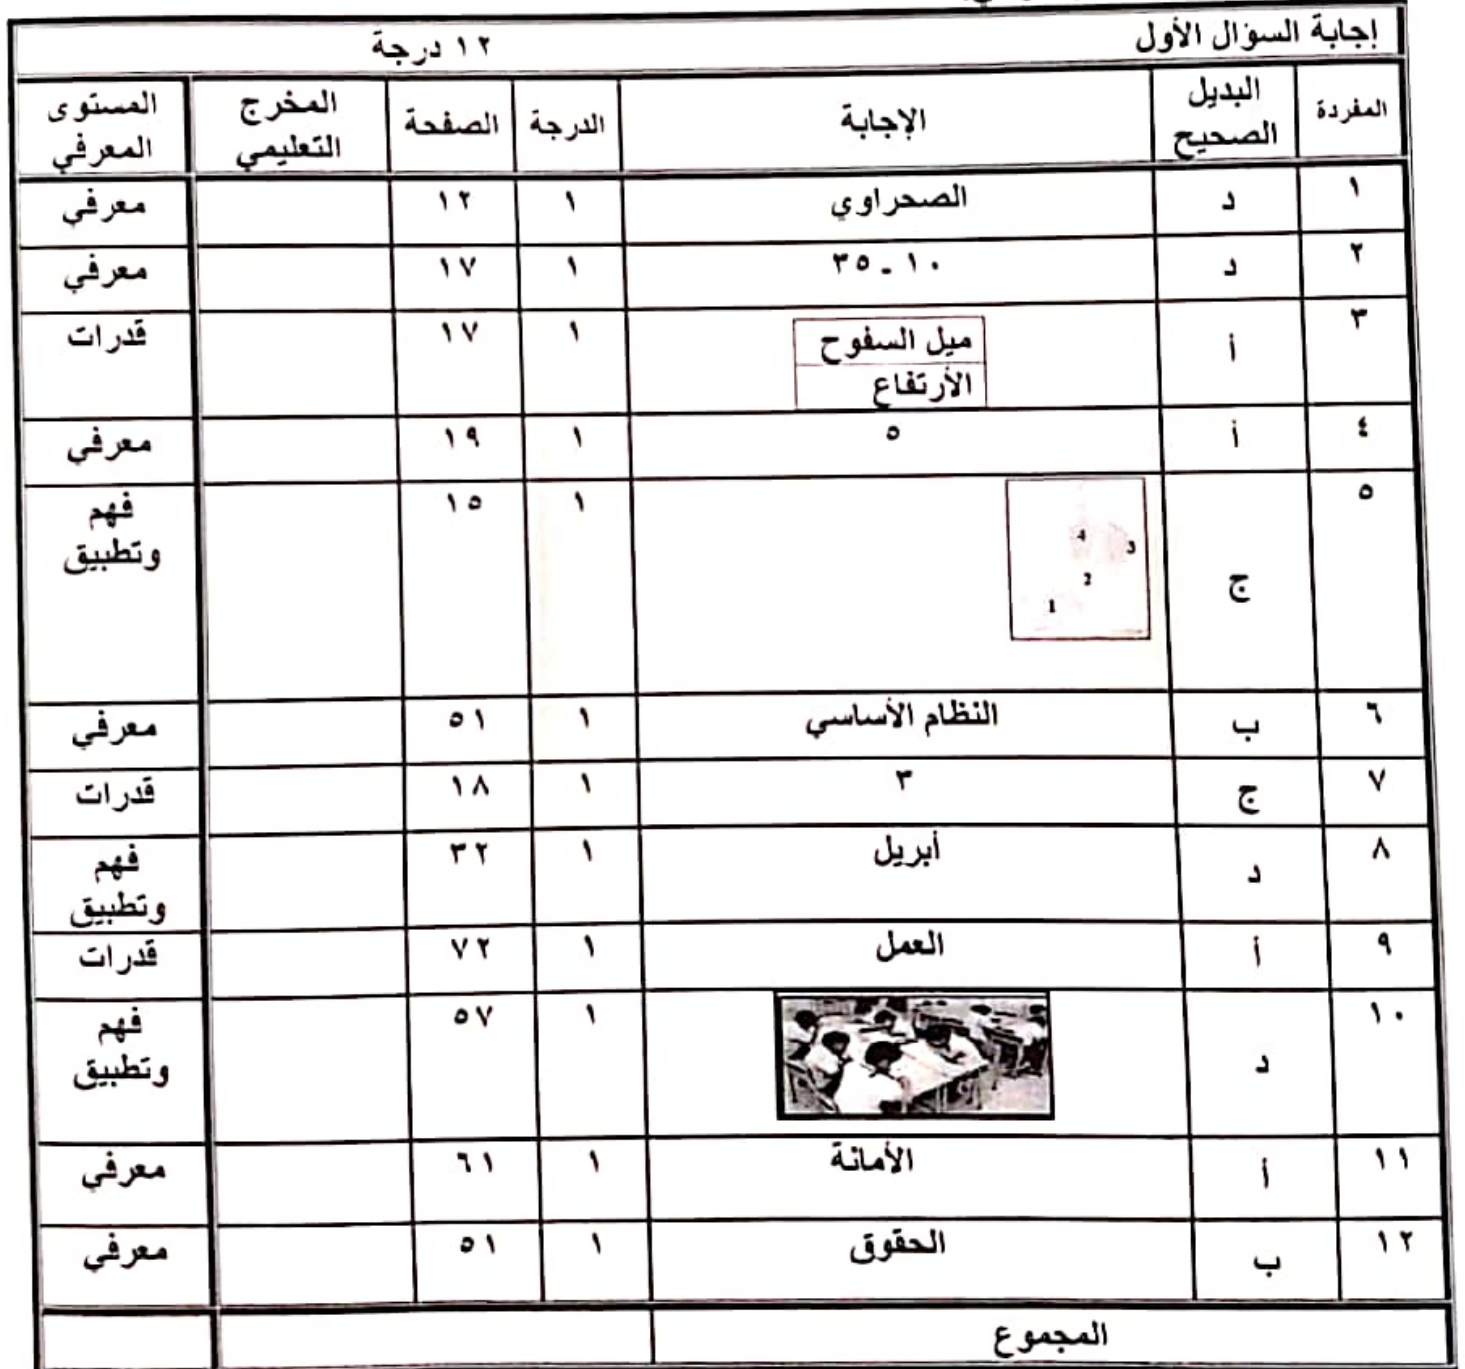 إجابة السؤال الأول ١٢ درجة
المفردة البديل الصحيح الإجابة الدرجة الصفحة المخرج التعليمي المستوى المعرفي
١ د الصحراوي ١ ١٢ معرفي
٢ د ١٠ - ٣٥ ١ ١٧ معرفي
٣ أ ميل السفوح ١ ١٧ قدرات
الأرتفاع
٤ أ ٥ ١ ١٩ معرفي
٥ ج ١ ١٥ فهم وتطبيق
4
3
2
1
٦ ب النظام الأساسي ١ ٥١ معرفي
٧ ج ٣ ١ ١٨ قدرات
٨ د أبريل ١ ٣٢ فهم وتطبيق
٩ أ العمل ١ ٧٢ قدرات
١٠ د ١ ٥٧ فهم وتطبيق
١١ أ الأمانة ١ ٦١ معرفي
١٢ ب الحقوق ١ ٥١ معرفي
المجموع